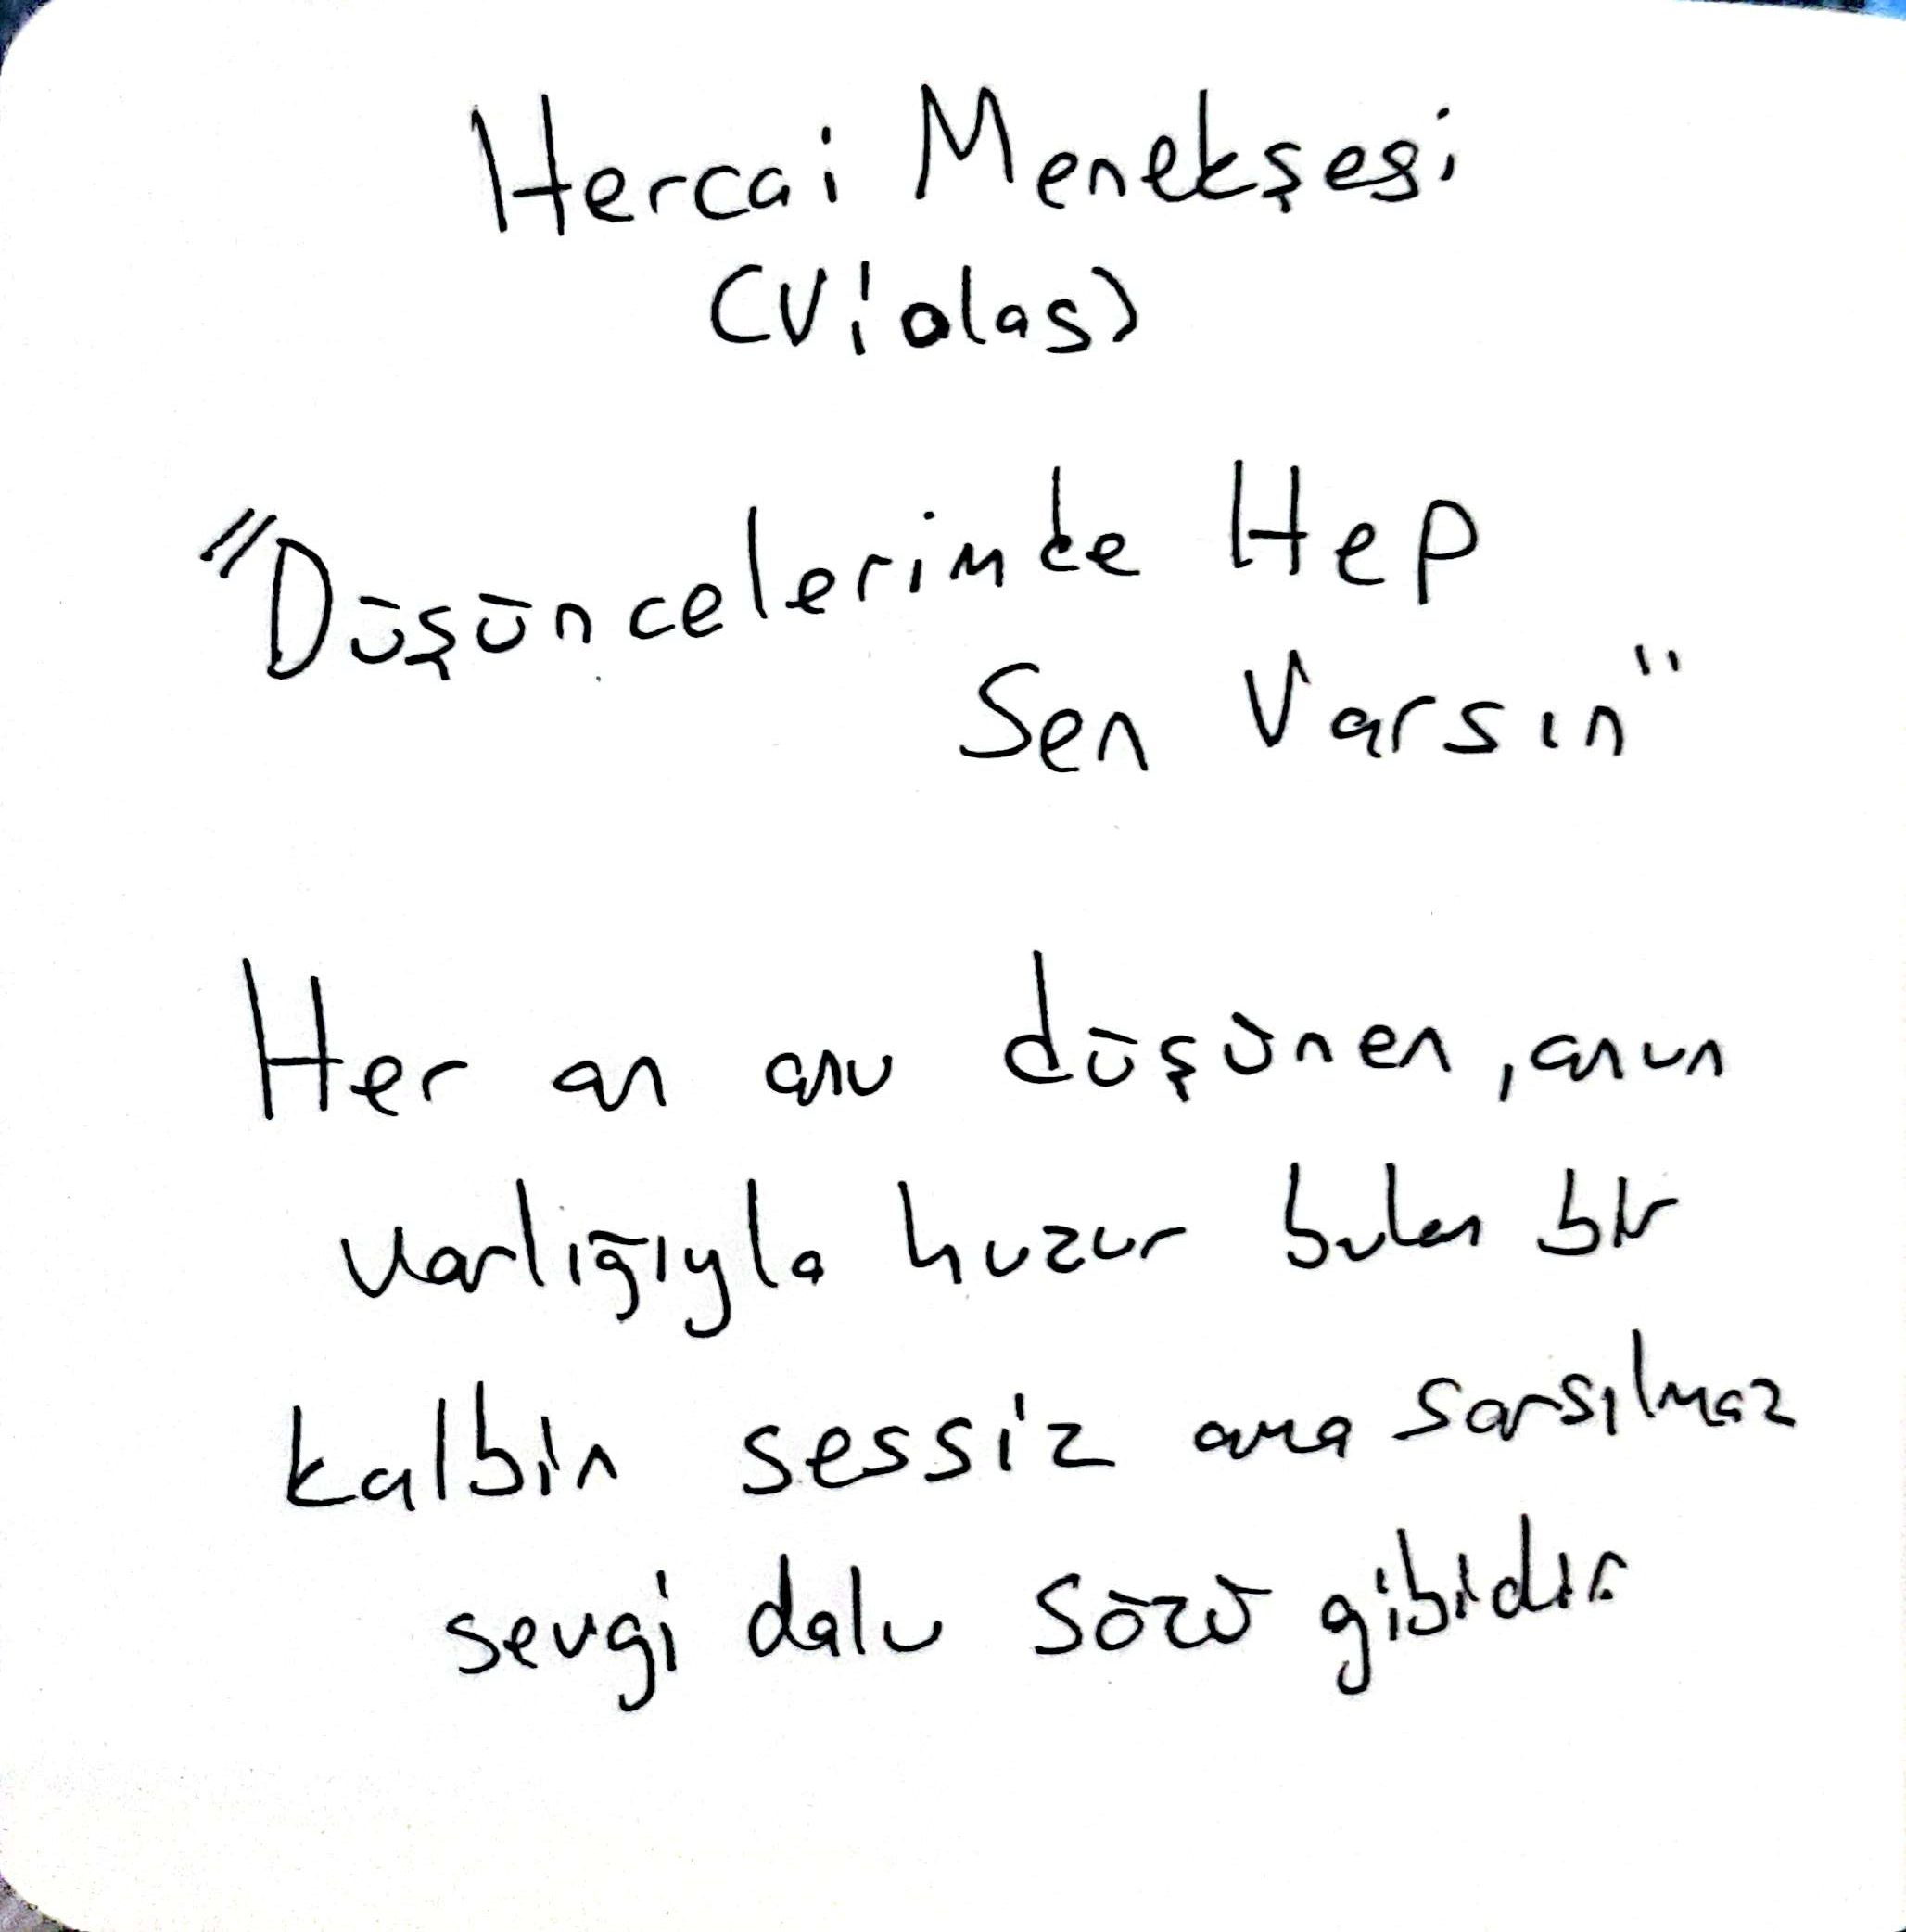 Hercai Menekşesi
(Violas)
"Düşüncelerimde Hep
Sen Varsın"
Her an onu düşünen, onun
varlığıyla huzur bulan bir
kalbin sessiz ama sarsılmaz
sevgi dolu sözü gibidir.